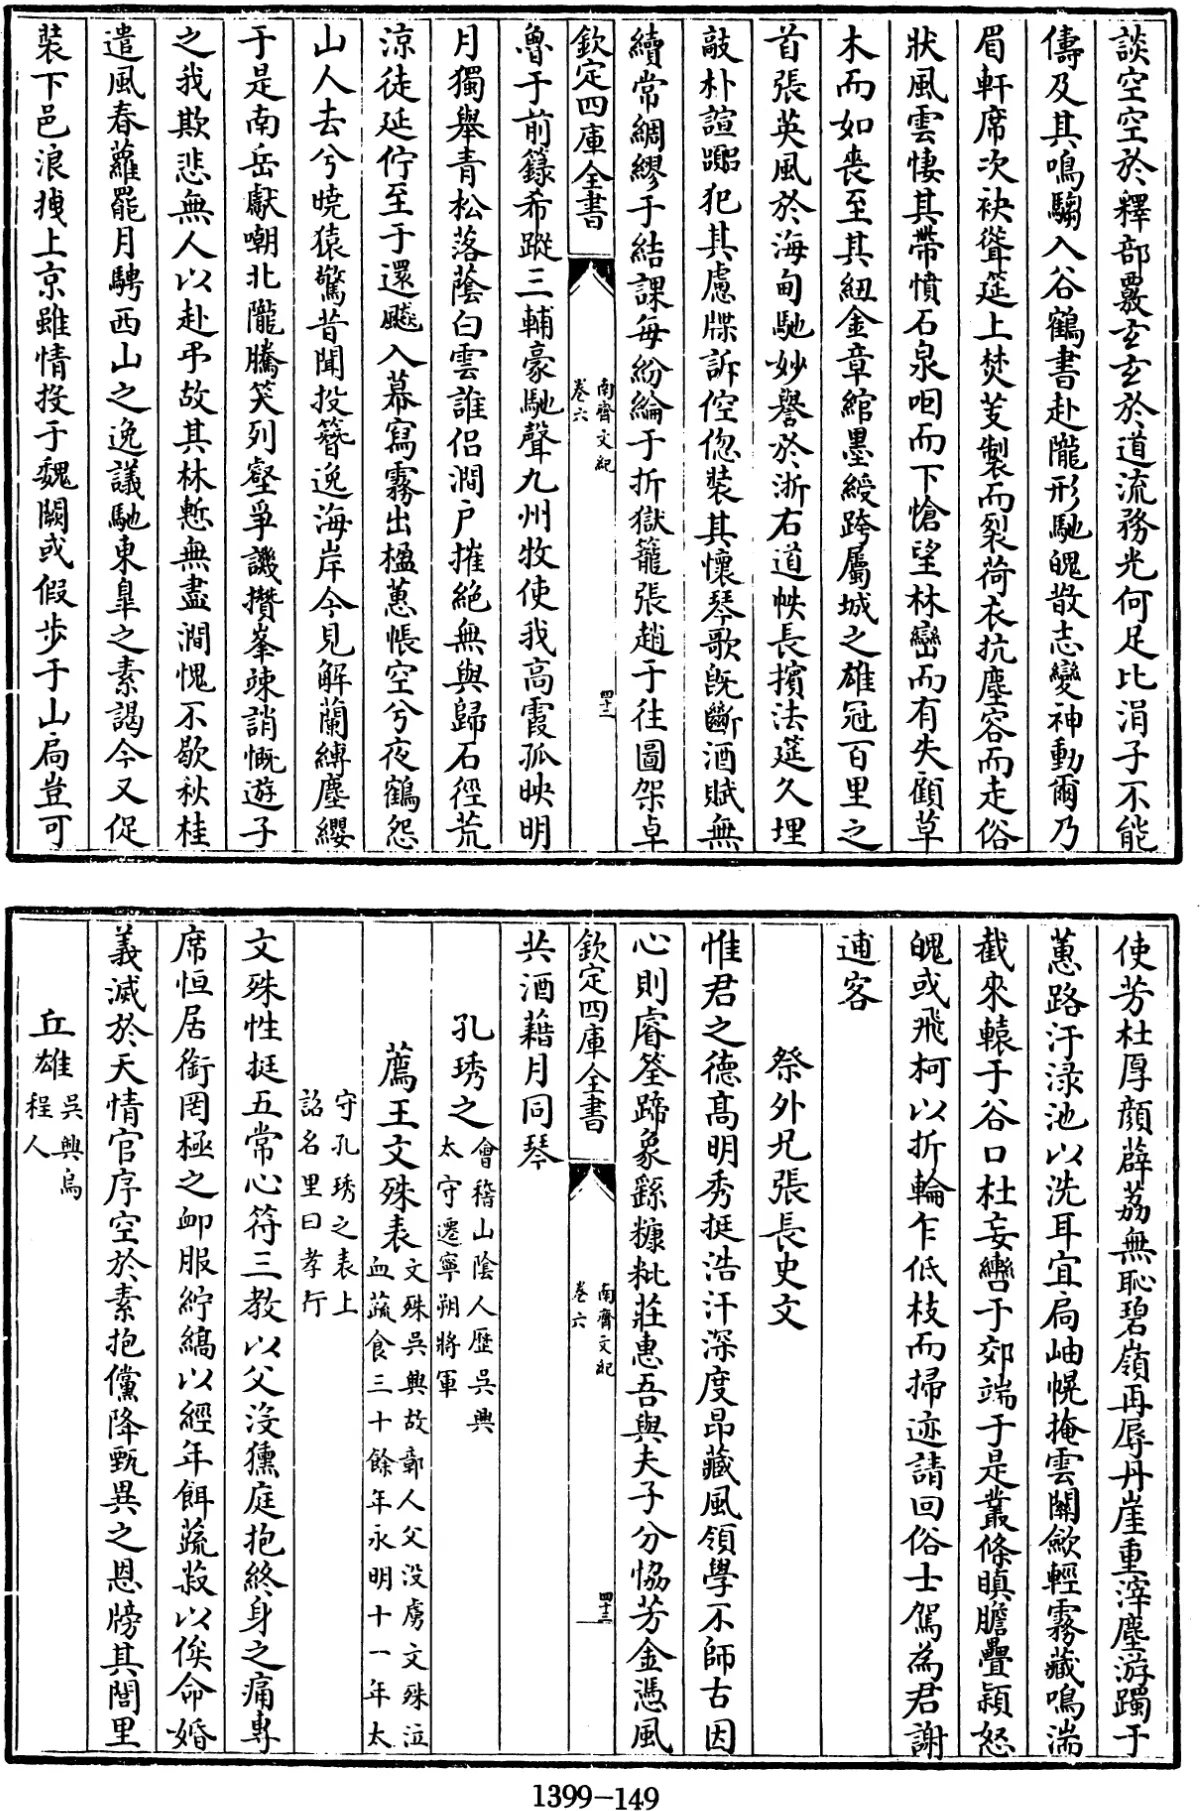 談空空於釋部覈𤣥𤣥於道流務光何足比涓子不能
儔及其鳴騶入谷鶴書赴隴形馳魄散志變神動爾乃
眉軒席次袂聳筵上焚芰製而裂荷衣抗塵容而走俗
狀風雲悽其帶憤石泉咽而下愴望林巒而有失顧草
木而如喪至其紐金章綰墨綬跨屬城之雄冠百里之
首張英風於海甸馳妙譽於浙右道帙長擯法筵久埋
敲朴諠嚻犯其慮牒訴倥偬裝其懷琴歌既斷酒賦無
續常綢繆于結課每紛綸于折獄籠張趙于往圖架卓
欽定四庫全書
南齊文紀
卷六
四十二
魯于前籙希蹤三輔豪馳聲九州牧使我高霞孤映明
月獨舉青松落蔭白雲誰侣澗户摧絶無與歸石徑荒
涼徒延佇至于還飈入幕寫霧出楹蕙帳空兮夜鶴怨
山人去兮曉猿驚昔聞投簪逸海岸今見解蘭縛塵纓
于是南岳獻嘲北隴騰笑列壑爭譏攢峯竦誚慨遊子
之我欺悲無人以赴弔故其林慙無盡澗愧不歇秋桂
遣風春蘿罷月騁西山之逸議馳東臯之素謁今又促
裝下邑浪拽上京雖情投于魏闕或假步于山局豈可
使芳杜厚顔薜荔無恥碧嶺再辱丹崖重滓塵游躅于
蕙路汙渌池以洗耳宜局岫幌掩雲闗歛輕霧藏鳴湍
截來轅于谷口杜妄轡于郊端于是叢條瞋膽疊穎怒
魄或飛柯以折輪乍低枝而掃迹請回俗士駕為君謝
逋客
祭外兄張長史文
惟君之德髙明秀挺浩汗深度昂藏風領學不師古因
心則睿筌蹄象繇糠粃莊惠吾與夫子分恊芳金憑風
欽定四庫全書
南齊文紀
卷六
四十三
共酒藉月同琴
孔琇之會稽山陰人歴吳興
太守遷寧朔將軍
薦王文殊表文殊吳興故鄣人父没虜文殊泣
血蔬食三十餘年永明十一年太
守孔琇之表上
詔名里曰孝行
文殊性挺五常心符三教以父沒獯庭抱終身之痛專
席恒居銜罔極之䘏服紵縞以經年餌蔬菽以俟命婚
義滅於天情官序空於素抱儻降甄異之恩牓其閭里
丘雄吳興烏
程人
1399-149